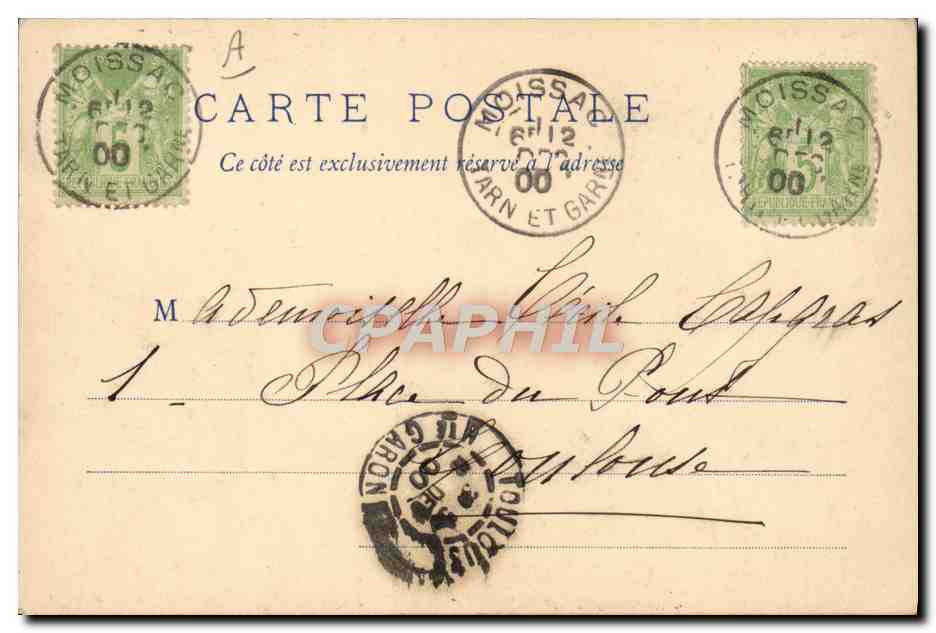 A
MOISSAC
6E 12
DEC
00
TARN ET GARNE
CARTE POSTALE
Ce côté est exclusivement réservé à l'adresse
MOISSAC
6E 12
DEC
00
TARN ET GARNE
MOISSAC
6E 12
DEC
00
REPUBLIQUE FRANÇAISE
Mademoiselle Cécile Cafgras
CPAPHIL
1 - Place du Pont
Toulouse
TOULOUSE
Hte GARON
DEC
00